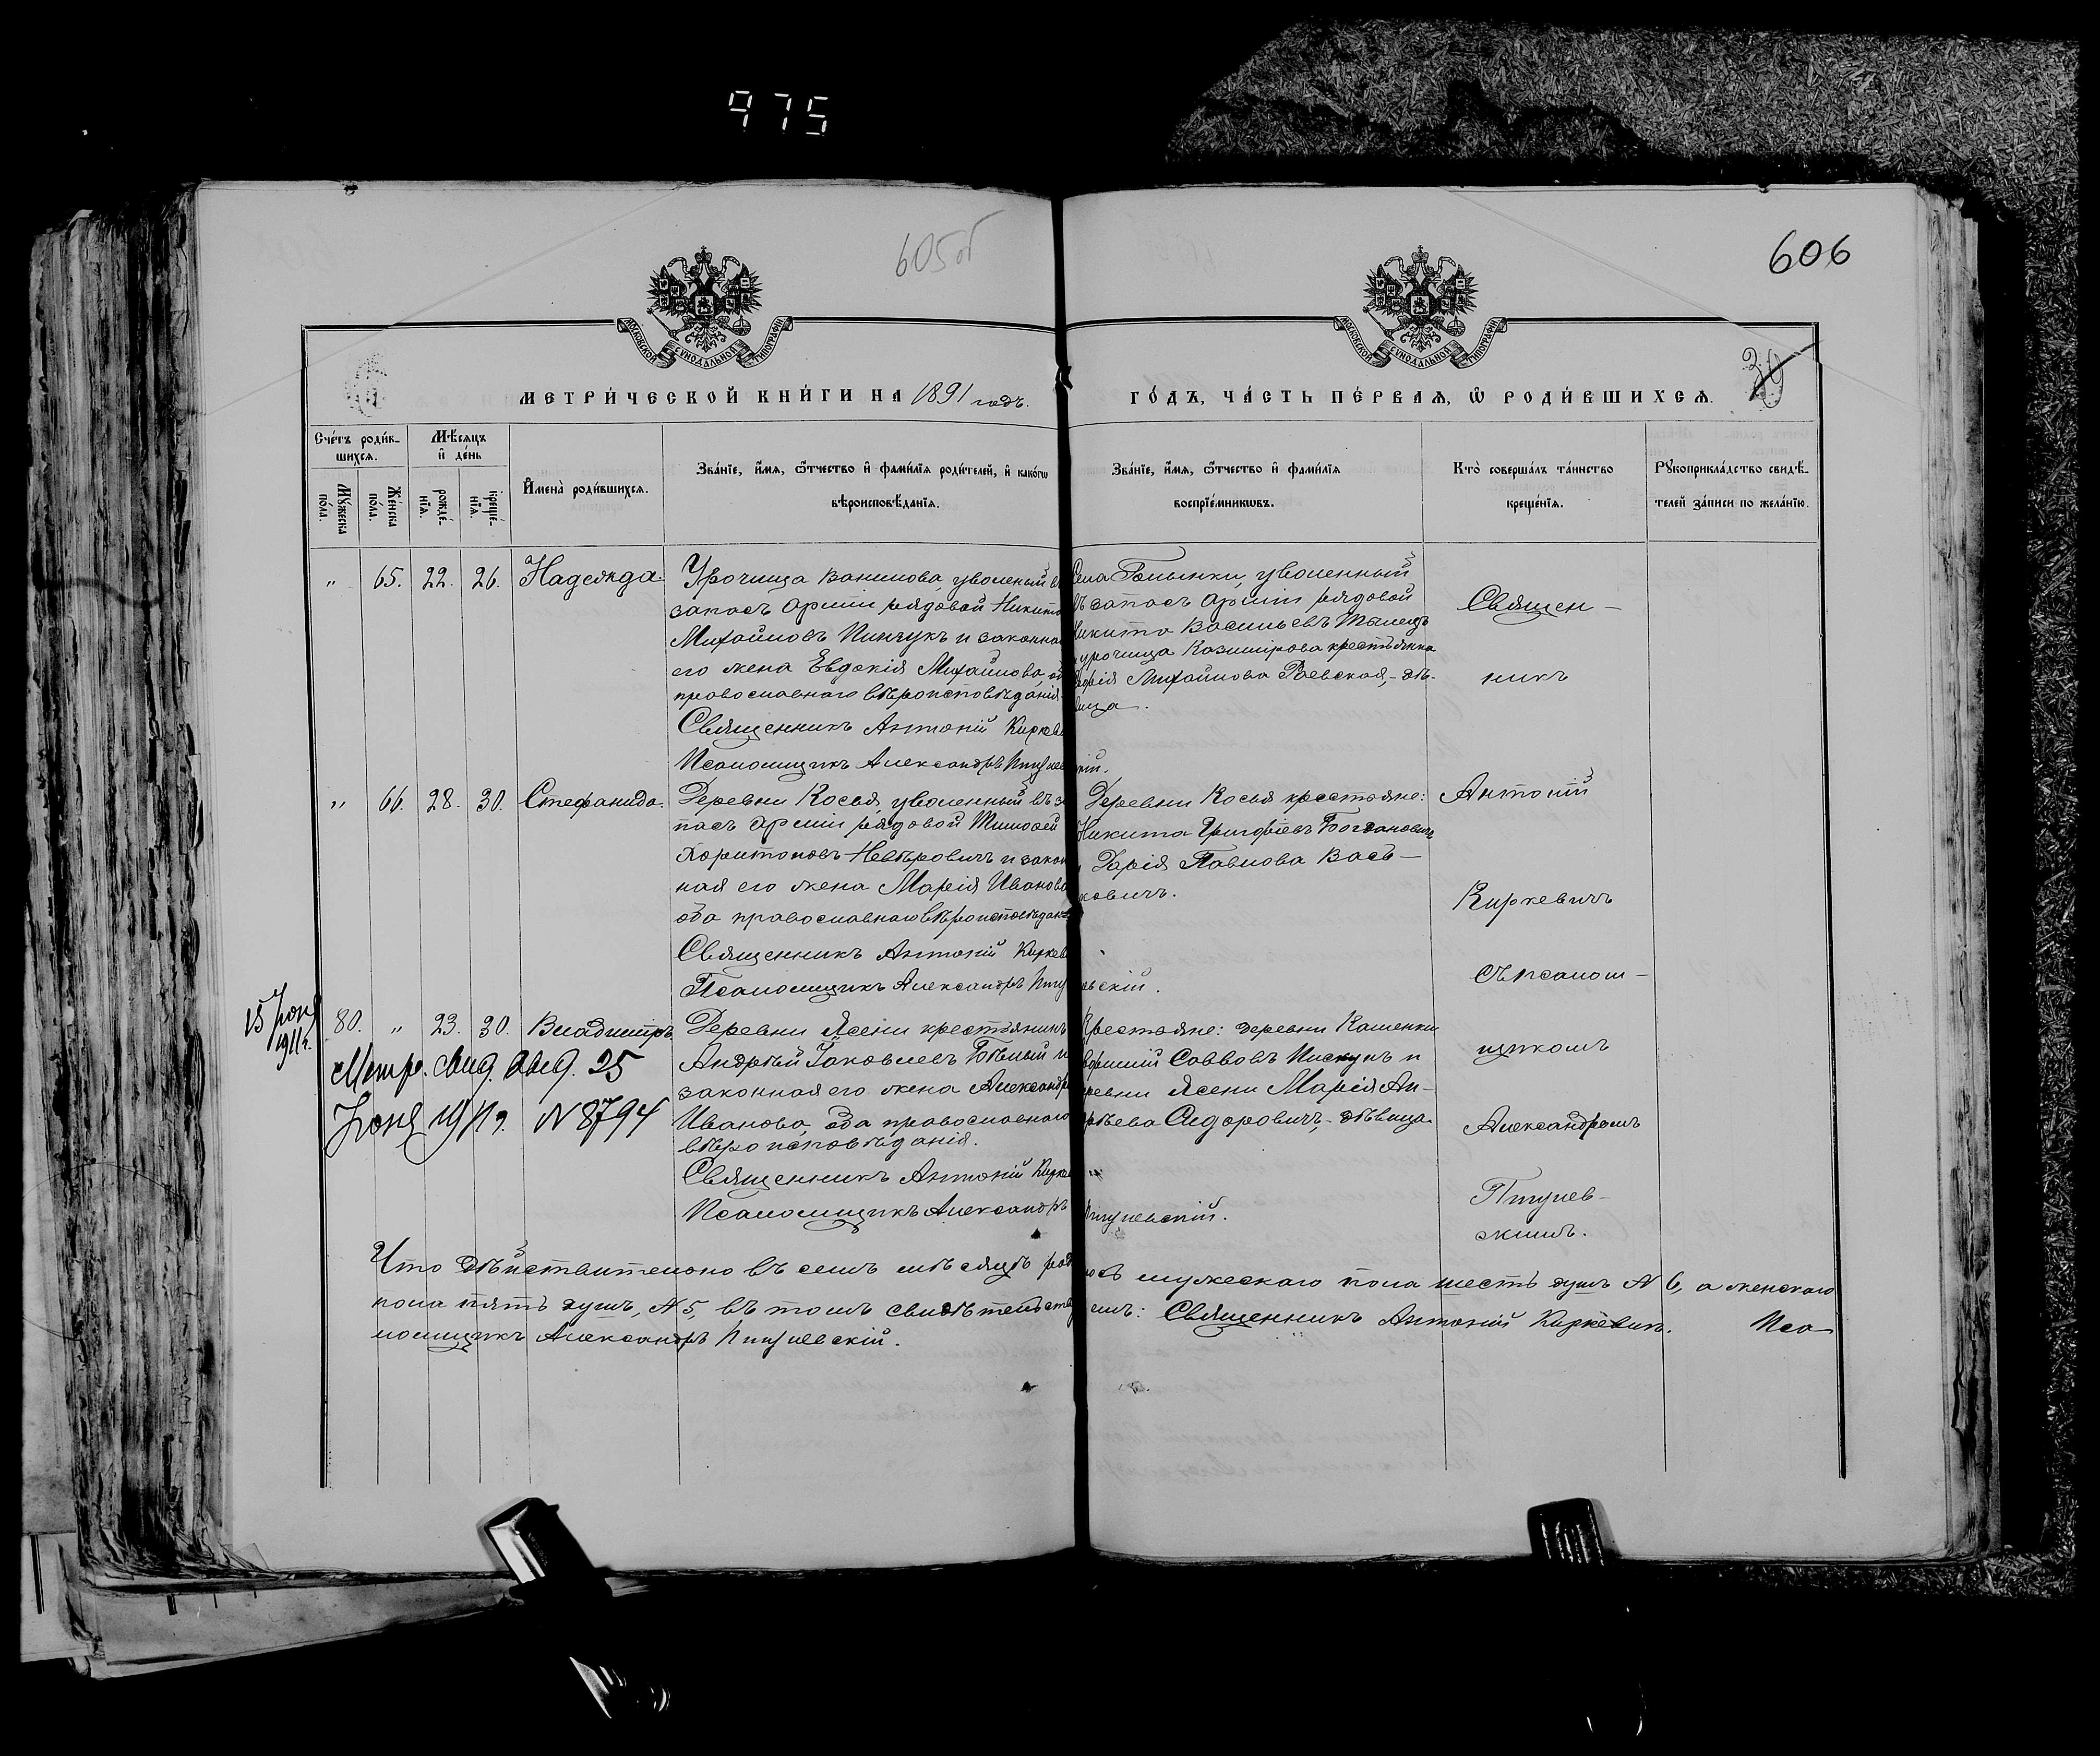 975
605об
606
МОСКОВСКОЙ СѴНОДАЛЬНОЙ ТИПОГРАФІИ
МОСКОВСКОЙ СѴНОДАЛЬНОЙ ТИПОГРАФІИ
МЕТРИ́ЧЕСКОЙ КНИ́ГИ НА 1891 годъ.
ГО́ДЪ, ЧА́СТЬ ПЕ́РВАѦ, Ѿ РОДИ́ВШИХСѦ.
Сче́тъ роди́в-
шихсѧ.
Мѣ́сѧцъ
и҆ де́нь
Мꙋ́жеска
по́ла.
Же́нска
по́ла.
рожде́-
нїѧ.
креще́-
нїѧ.
И҆мена̀ роди́вшихсѧ.
Зва́нїе, и҆́мѧ, ѻ҆́тчество и҆ фами́лїѧ роди́телей, и҆ како́гѡ
вѣроисповѣ́данїѧ.
Зва́нїе, и҆́мѧ, ѻ҆́тчество и҆ фами́лїѧ
воспрїе́мникѡвъ.
Кто̀ соверша́лъ та́инство
креще́нїѧ.
Рꙋкоприкла́дство свидѣ́-
телей за́писи по жела́нїю.
„ 65. 22. 26. Надежда.
Урочища Ванилова, уволеный въ
запасъ Арміи рядовой Никита
Михайловъ Пинчукъ и законная
его жена Евдокія Михайлова, оба
православнаго вѣроисповѣданія.
Священникъ Антоній Киркев
Псаломщикъ Александръ
Села Голынки, уволенный
въ запасъ Арміи рядовой
Никита Васильевъ
урочища Казимірова крестьянка
Марія Михайлова Раевская, - дѣ-
вица.
скій.
„ 66. 28. 30. Стефанида.
Деревни Косья, уволенный въ за
пасъ Арміи рядовой Тимофей
Харитоновъ Невѣровичъ и закон
ная его жена Марія Иванова
оба православнаго вѣроисповѣдан
Священникъ Антоній Киркев
Псаломщикъ Александръ
Деревни Косья крестьяне:
Никита Григорьевъ Богдановичъ
и Дарія Павлова Вась-
ковичъ.
вскій.
15 Іюня
1911 г.
80. „ 23. 30. Владиміръ.
Метр. свид. выд. 25
Іюня 1911 г. N 8794
Деревни Ясени крестьянинъ
Андрей Іаковлевъ Бѣлый и
законная его жена Александра
Иванова, оба православнаго
вѣроисповѣданія.
Священникъ Антоній Киркев
Псаломщикъ Александръ
Крестьяне: деревни Каменки
Саввовъ Пискунъ и
деревни Ясени Марія Ан-
дреева Сидоровичъ, - дѣвица.
Священ-
никъ
Антоній
Киркевичъ
съ псалом-
щикомъ
Александромъ
Что дѣйствительно въ семъ мѣсяцѣ родилось мужескаго пола шесть душъ N 6, а женскаго
пола пять душъ, N 5, въ томъ свидѣтельствуемъ: Священникъ Антоній Киркевичъ. Пса
ломщикъ Александръ